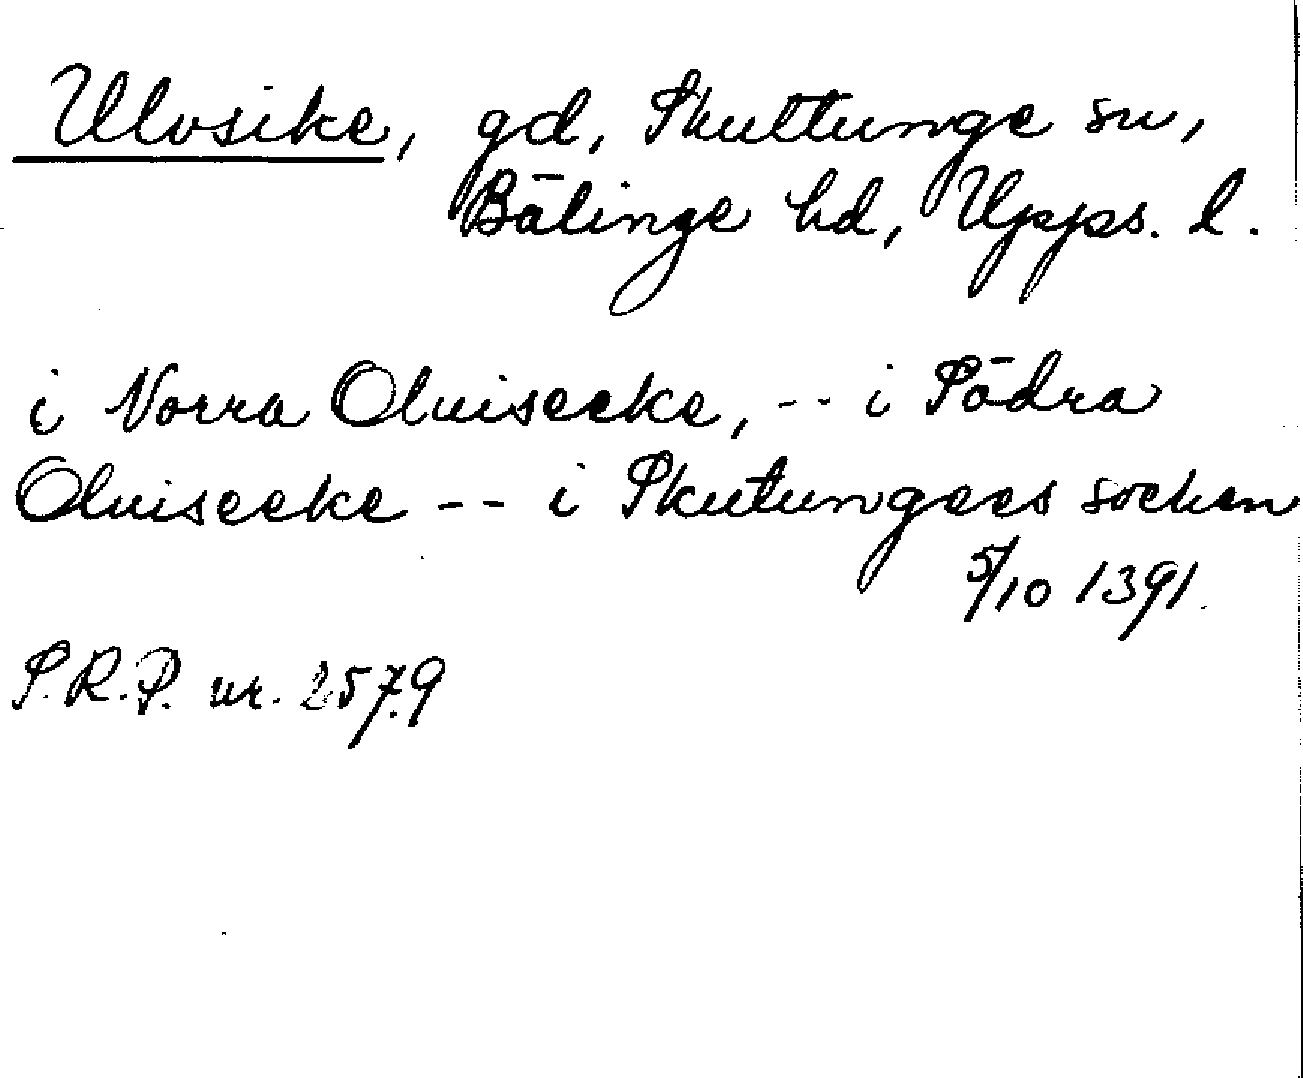 Ulvsike, gd, Skuttunge sn,
Bälinge hd, Upps. l.
i Norra Oluiseeke, -- i Södra
Oluiseeke -- i Skutungees socken
5/10 1391.
S.R.P. nr. 2579